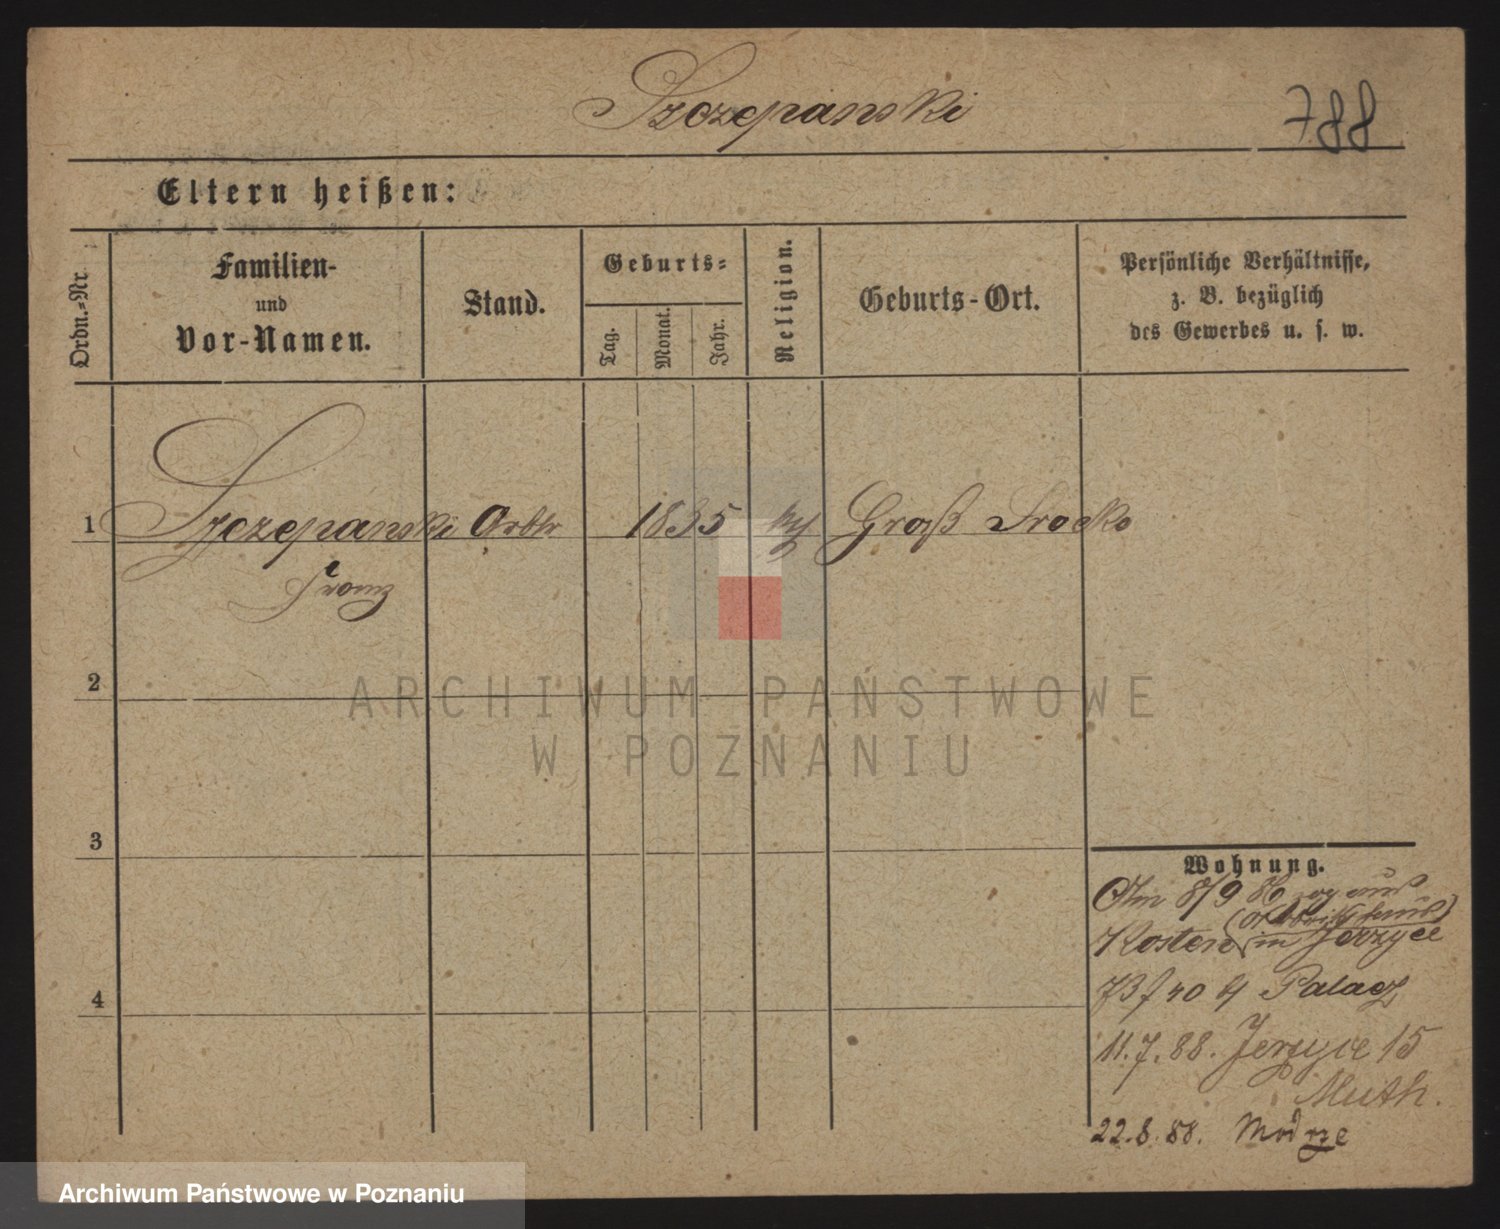 Szczepanski
788
Eltern heißen:
Ordn.-Nr.
Familien-
und
Vor-Namen.
Stand.
Geburts-
Tag.
Monat.
Jahr.
Religion.
Geburts-Ort.
Persönliche Verhältnisse,
z. B. bezüglich
des Gewerbes u. s. w.
1 Szczepanski Arbtr 1835 Groß Srocko
Franz
2
3
4
Wohnung.
Am 8/9 86 aus
Kosten in Jerzyce
Palacz
11.7.88. Jerzyce 15
Muth.
22.8.88. Modrze
ARCHIWUM PAŃSTWOWE
W POZNANIU
Archiwum Państwowe w Poznaniu